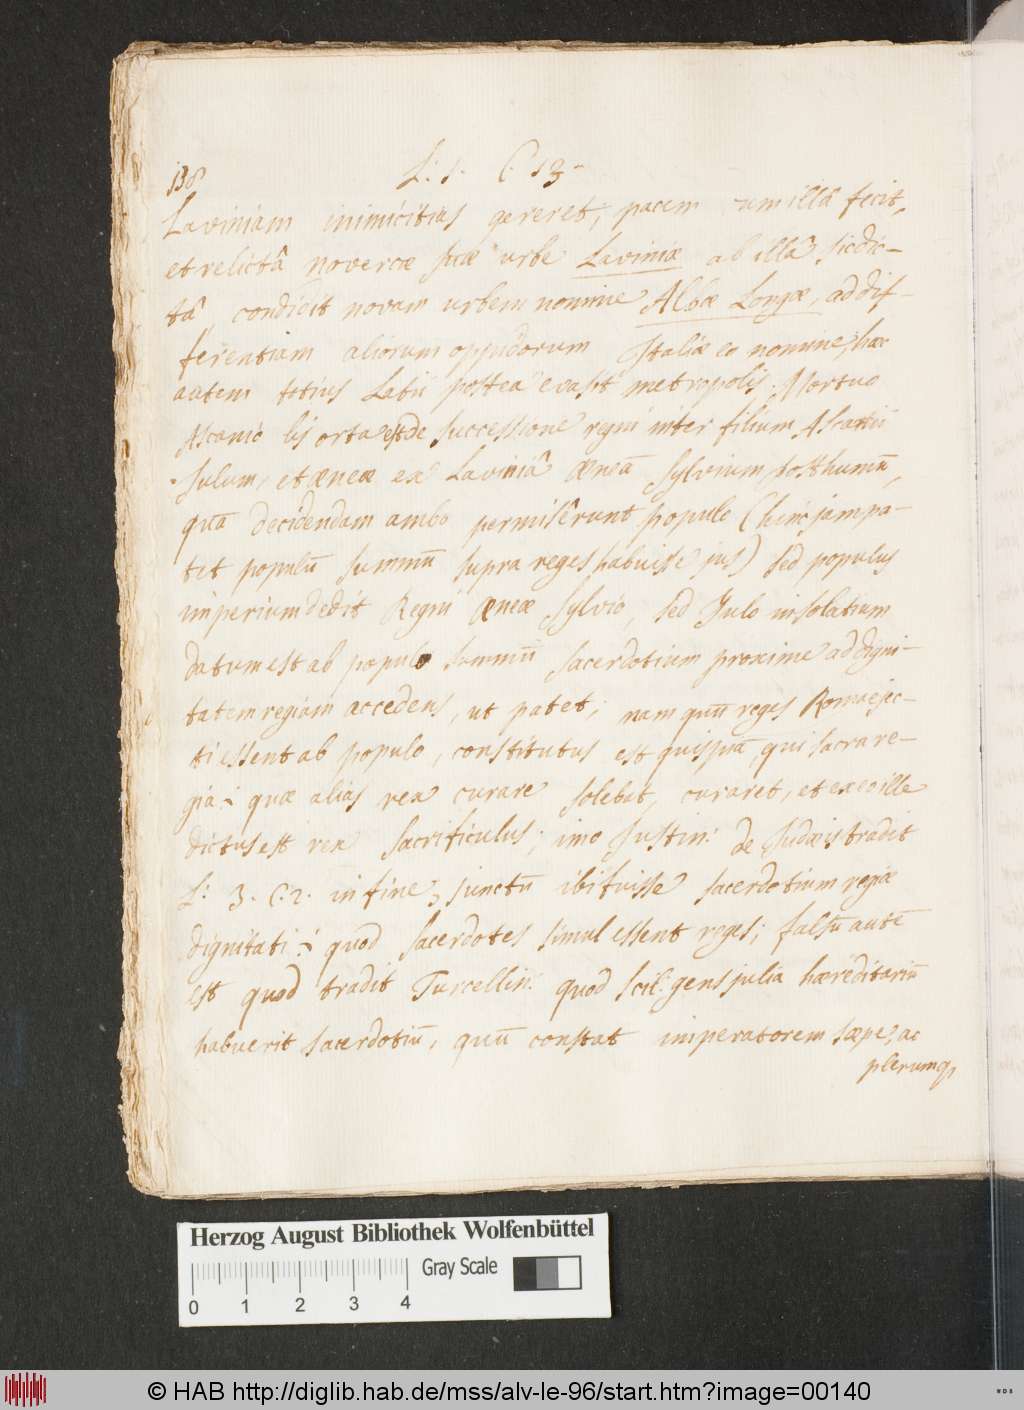 138
L: 1. C 13-
Laviniam inimicitias gereret, pacem cum illâ fecit,
et relictâ novercæ suæ urbe Laviniæ ab illâ sic dic-
tâ condidit novam urbem nomine Albæ Longæ, ad dif-
ferentiam aliorum oppidorum Italiæ eo nomine, hæc
autem totius Latii postea evasit metropolis. Mortuo
Ascanio lis orta est de successione regni inter filium Ascanii
Julum, et æneæ ex Laviniâ æneā Sylvium posthumū,
quā decidendam ambo permisêrunt populo (hinc jam pa-
tet populū summū supra reges habuisse jus) sed populus
imperium dedit Regni æneæ Sylvio, sed Julo in solatium
datum est ab populo summū sacerdotium proxime ad digni-
tatem regiam accedens, ut patet; nam quū reges Romæ ejec-
ti essent ab populo, constitutus est quispiā, qui sacra re-
gia quæ alias rex curare solebat, curaret, et ex eo ille
dictus est rex sacrificulus; imo Justin: de Judæis tradit
L: 3. C: 2. in fine, junctū ibi fuisse sacerdotium regiæ
dignitati quod sacerdotes simul essent reges; falsū autē
est quod tradit Turcellin: quod scil: gens julia hæreditariū
habuerit sacerdotiū, quū constat imperatorem sæpe, ac
plerumq,
Herzog August Bibliothek Wolfenbüttel
Gray Scale
0 1 2 3 4
© HAB http://diglib.hab.de/mss/alv-le-96/start.htm?image=00140